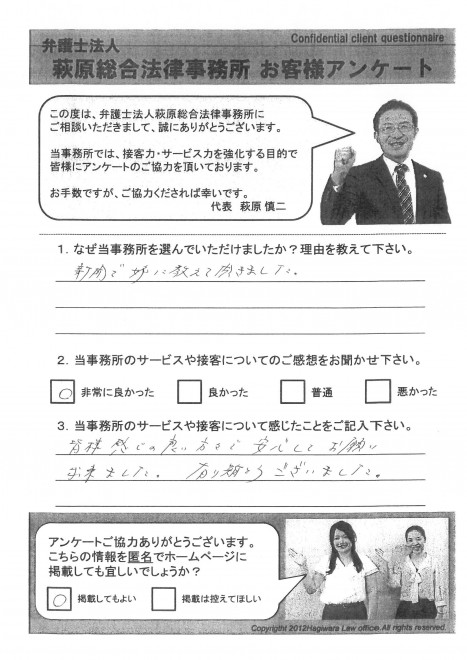 Confidential client questionnaire
弁護士法人
萩原総合法律事務所 お客様アンケート
この度は、弁護士法人萩原総合法律事務所に
ご相談いただきまして、誠にありがとうございます。
当事務所では、接客力・サービス力を強化する目的で
皆様にアンケートのご協力を頂いております。
お手数ですが、ご協力くだされば幸いです。
代表 萩原 慎二
1. なぜ当事務所を選んでいただけましたか？理由を教えて下さい。
新聞で 妹に教えて頂きました。
2. 当事務所のサービスや接客についてのご感想をお聞かせ下さい。
○ 非常に良かった 良かった 普通 悪かった
3. 当事務所のサービスや接客について感じたことをご記入下さい。
皆様 感じの良い方々で 安心して お願い
出来ました。 有り難とうございました。
アンケートご協力ありがとうございます。
こちらの情報を匿名でホームページに
掲載しても宜しいでしょうか？
○ 掲載してもよい 掲載は控えてほしい
Copyright 2012Hagiwara Law office.All rights reserved.